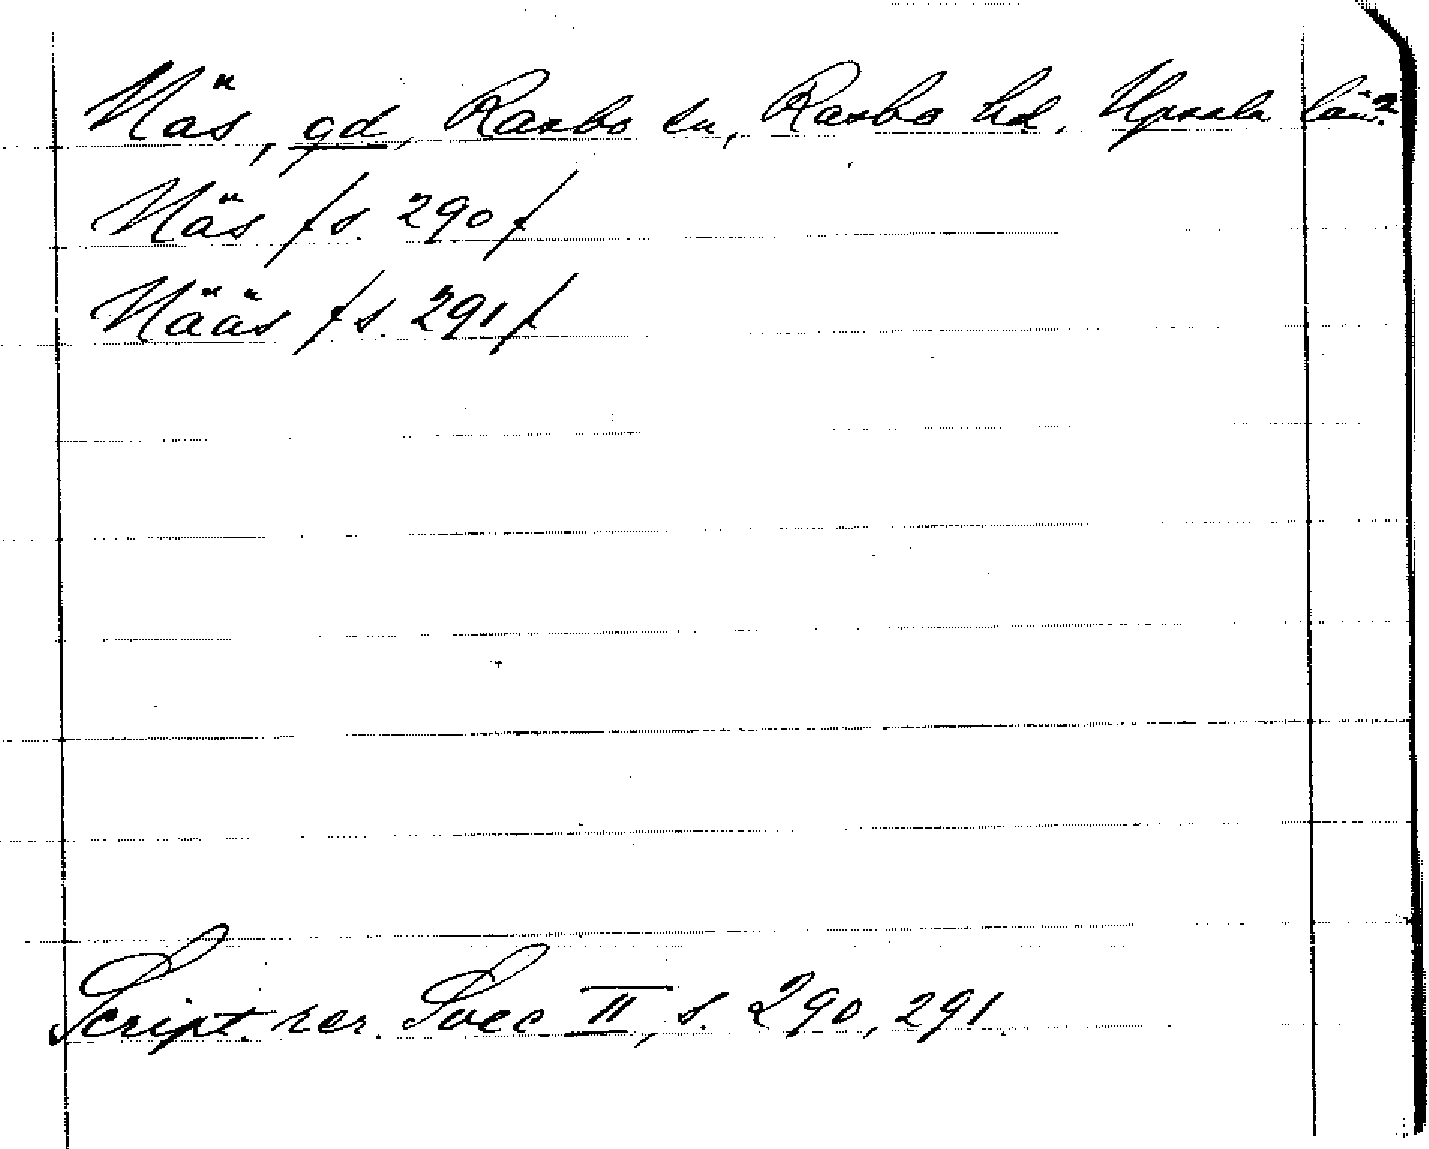 Näs, gd, Rasbo sn, Rasbo hd, Upsala län?
Näs /s. 290/
Nääs /s. 291/
Script. rer. Svec II, s. 290, 291.